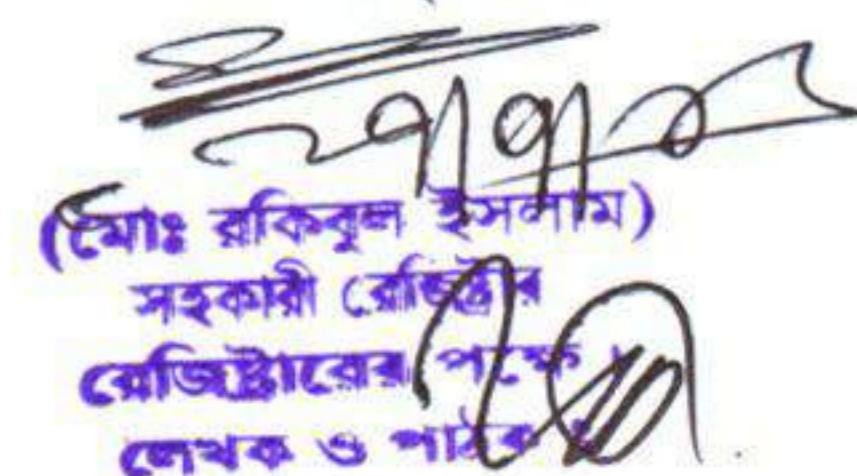 (মোঃ রকিবুল ইসলাম)
সহকারী রেজিষ্ট্রার
রেজিষ্ট্রারের পক্ষে ।
লেখক ও পাঠক ঃ